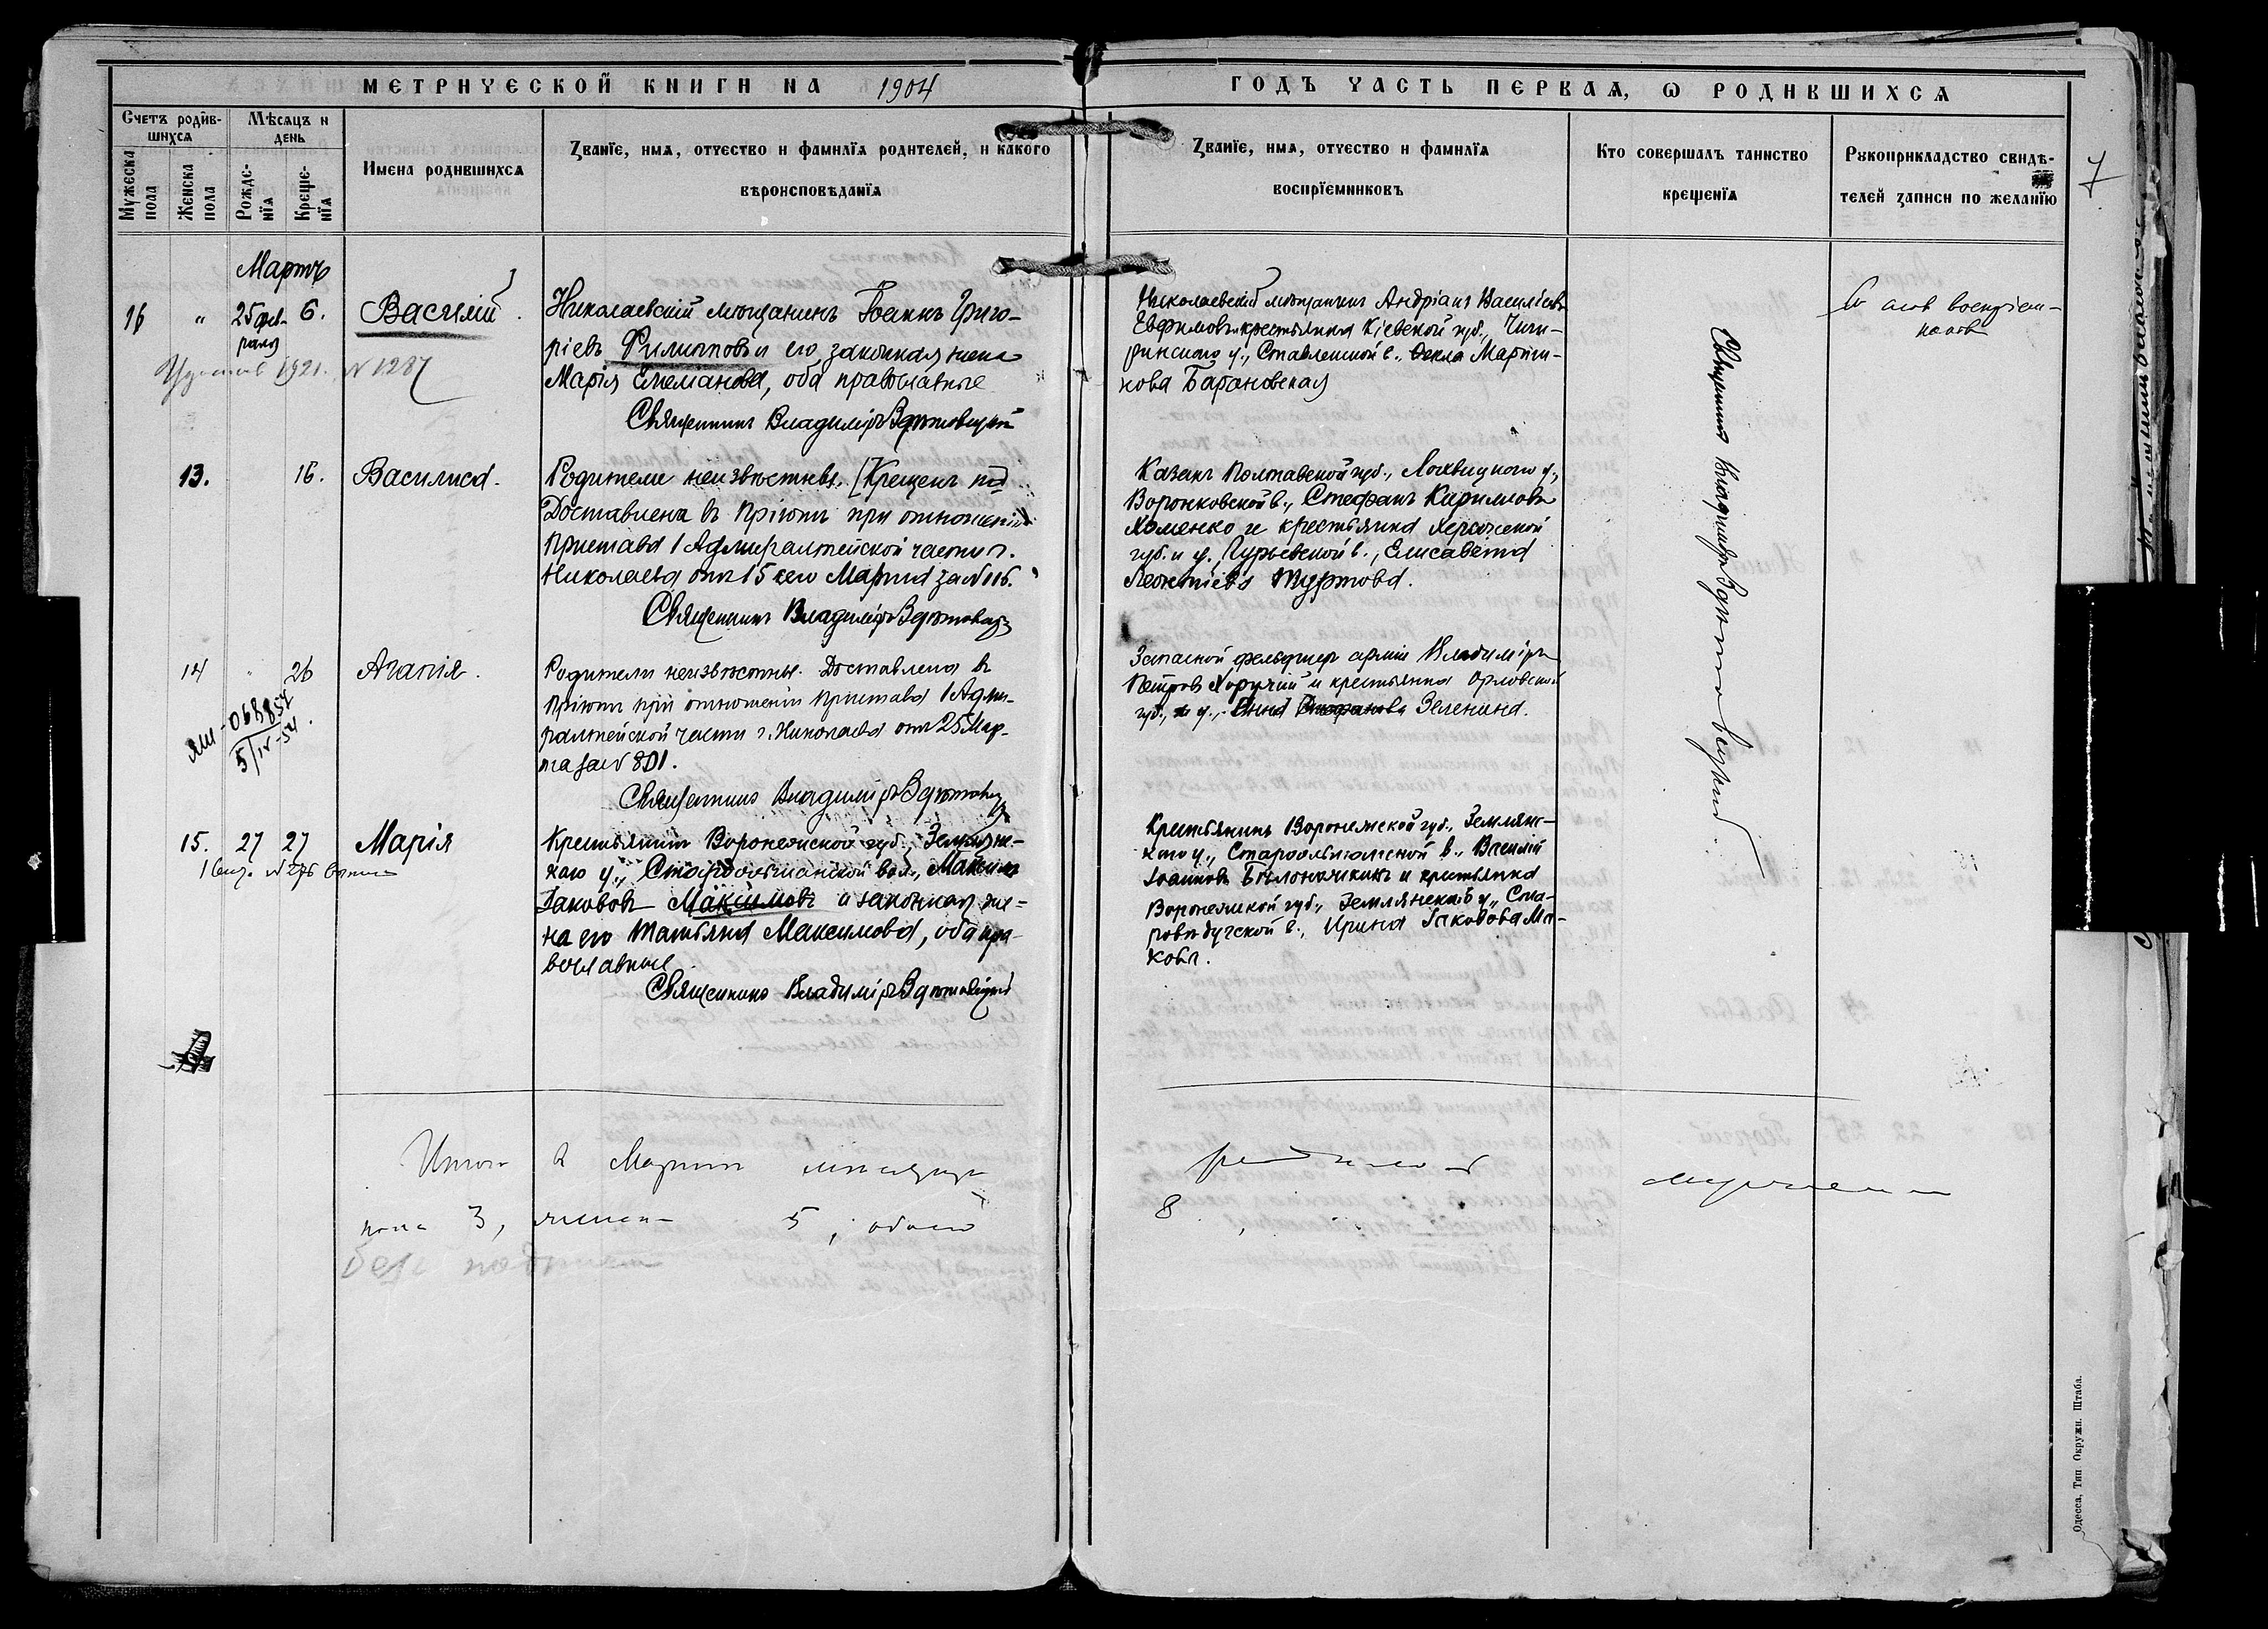 МЕТРИЧЕСКОЙ КНИГИ НА 1904
ГОДЪ ЧАСТЬ ПЕРВАЯ, Ѡ РОДИВШИХСЯ
7
Счетъ родив-
шихся
Мѣсяцъ и
день
Мужеска
пола
Женска
пола
Рожде-
нїя
Креще-
нїя
Имена родившихся
Званїе, имя, отчество и фамилїя родителей, и какого
вѣроисповѣданїя
Званїе, имя, отчество и фамилїя
воспрїемниковъ
Кто совершалъ таинство
крещенїя
Рукоприкладство свидѣ-
телей записи по желанїю
Мартъ
16 " 25 фев-
раля
6. Василій.
Николаевскій мѣщанинъ Іоаннъ Григо-
ріевъ Филипповъ и его законная жена
Марія Емеліанова, оба православные
Священникъ Владиміръ
Николаевскій мѣщанинъ Андріанъ Василіевъ
Евфимовъ и крестьянка Кіевской губ., Чиги-
ринскаго у., Ставлевской в., Ѳекла Марти-
нова Барановская
Со словъ воспріем-
никовъ
1921. № 1287
13. 16. Василиса.
Родители неизвѣстны. [Крещенъ
Доставлена въ Пріютъ при отношеніи
Пристава 1 Адмиралтейской части г.
Николаева отъ 15 сего Марта за №
Священникъ Владиміръ
Казакъ Полтавской губ., Лохвицкаго у.,
Воронковской в., Стефанъ Кирилловъ
Хоменко и крестьянка Херсонской
губ. и у., Гурьевской в., Елисавета
Леонтіева Туртова.
Священникъ Владиміръ
14 " 26 Агапія.
Родители неизвѣстны. Доставлена въ
Пріютъ при отношеніи Пристава 1 Адми-
ралтейской части г. Николаева отъ 25 Мар-
та за № 801.
Священникъ Владиміръ
Запасной фельдшеръ арміи Владиміръ
Петровъ Хоручій и крестьянка Орловской
губ., и у., Анна Стефанова Зеленина.
068857
5/IV-54.
15. 27 27 Марія
Крестьянинъ Воронежской губ., Землянс-
каго у., Староольшанской вол., Максимъ
Іакововъ Максимовъ и законная же-
на его Татьяна Максимова, оба пра-
вославные.
Священникъ Владиміръ
Крестьянинъ Воронежской губ., Землянс-
каго у., Староольшанской в., Василій
Іоанновъ и крестьянка
Воронежской губ., Землянскаго у., Ста-
роведугской в., Ирина Іаковова Ма-
кова.
Итого въ Мартѣ мѣсяцѣ родилось мужеска
пола 3, женска 5, обоего 8.
Одесса, Тип Окружн. Штаба.